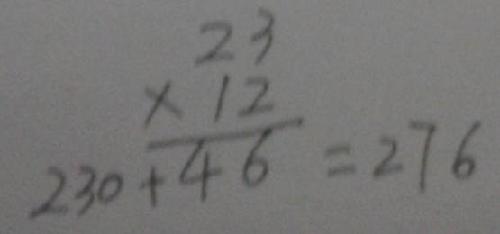 23
× 12
230 + 46 = 276